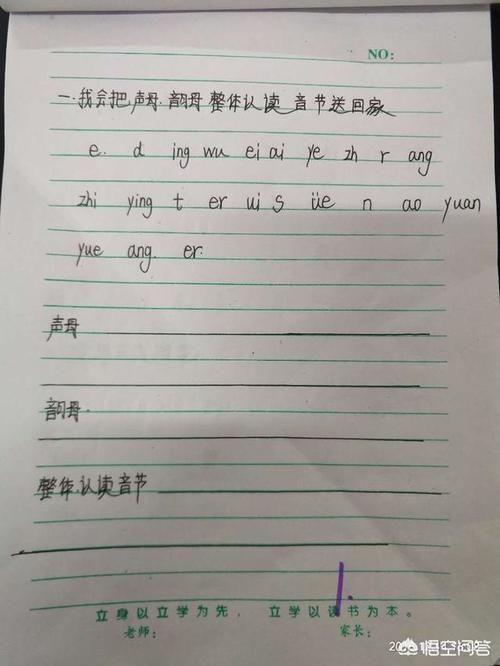 NO:
一.我会把声母.韵母整体认读音节送回家
e. d ing wu ei ai ye zh r ang
zhi ying t er ui s üe n ao yuan
yue ang. er.
声母
韵母.
整体认读音节
立身以立学为先， 立学以读书为本。
老师： 家长：
悟空问答